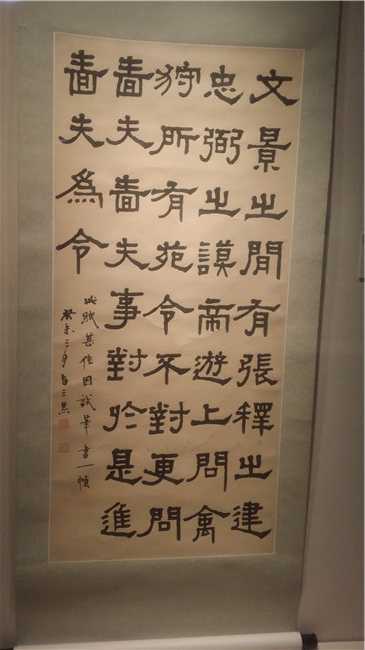 文景之間有張釋之建
忠弼之謨帝遊上問禽
狩所有苑令不對更問
嗇夫嗇夫事對於是進
嗇夫為令
此賦甚佳因試筆書一幀
癸未三月